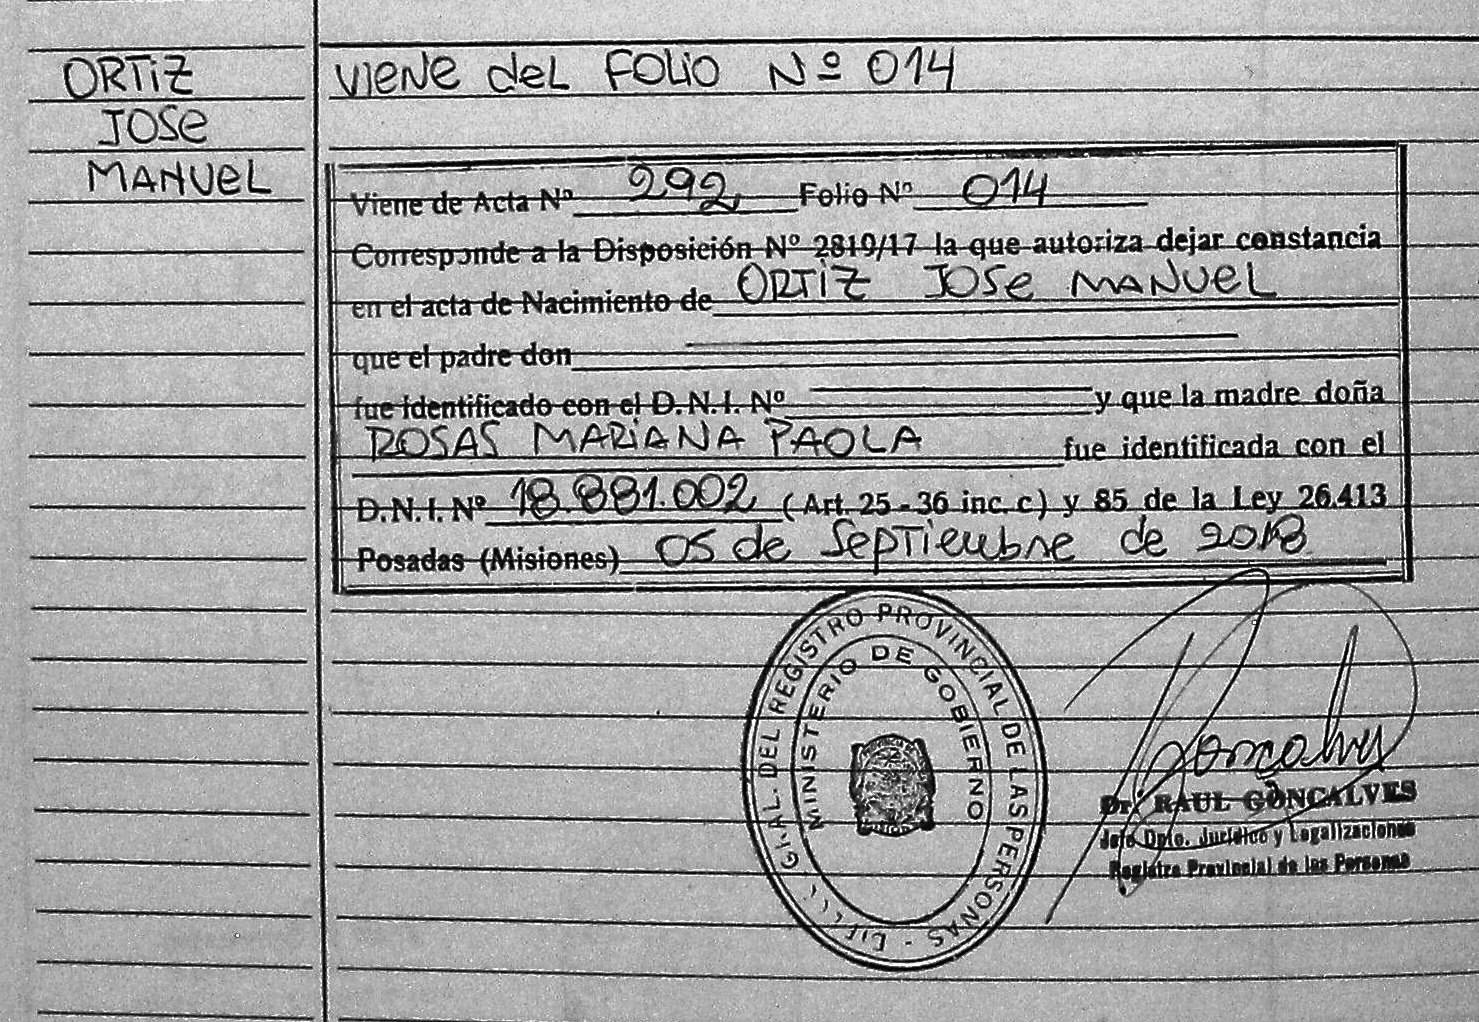 ORTiZ
JOSe
MANUeL
VIENE deL FOLiO Nº 014
Viene de Acta Nº 292 Folio Nº 014
Corresponde a la Disposición Nº 2819/17 la que autoriza dejar constancia
en el acta de Nacimiento de ORTiZ JOSe MANUeL
que el padre don
fue identificado con el D.N.I. Nº y que la madre doña
ROSAS MARiANA PAOLA fue identificada con el
D.N.I. Nº 18.881.002 (Art. 25 - 36 inc. c) y 85 de la Ley 26.413
Posadas (Misiones) 05 de Septiembre de 2018
GRAL. DEL REGISTRO PROVINCIAL DE LAS PERSONAS -
MINISTERIO DE GOBIERNO
Goncalves
Dr. RAUL GONCALVES
Jefe Dpto. Jurídico y Legalizaciones
Registro Provincial de las Personas